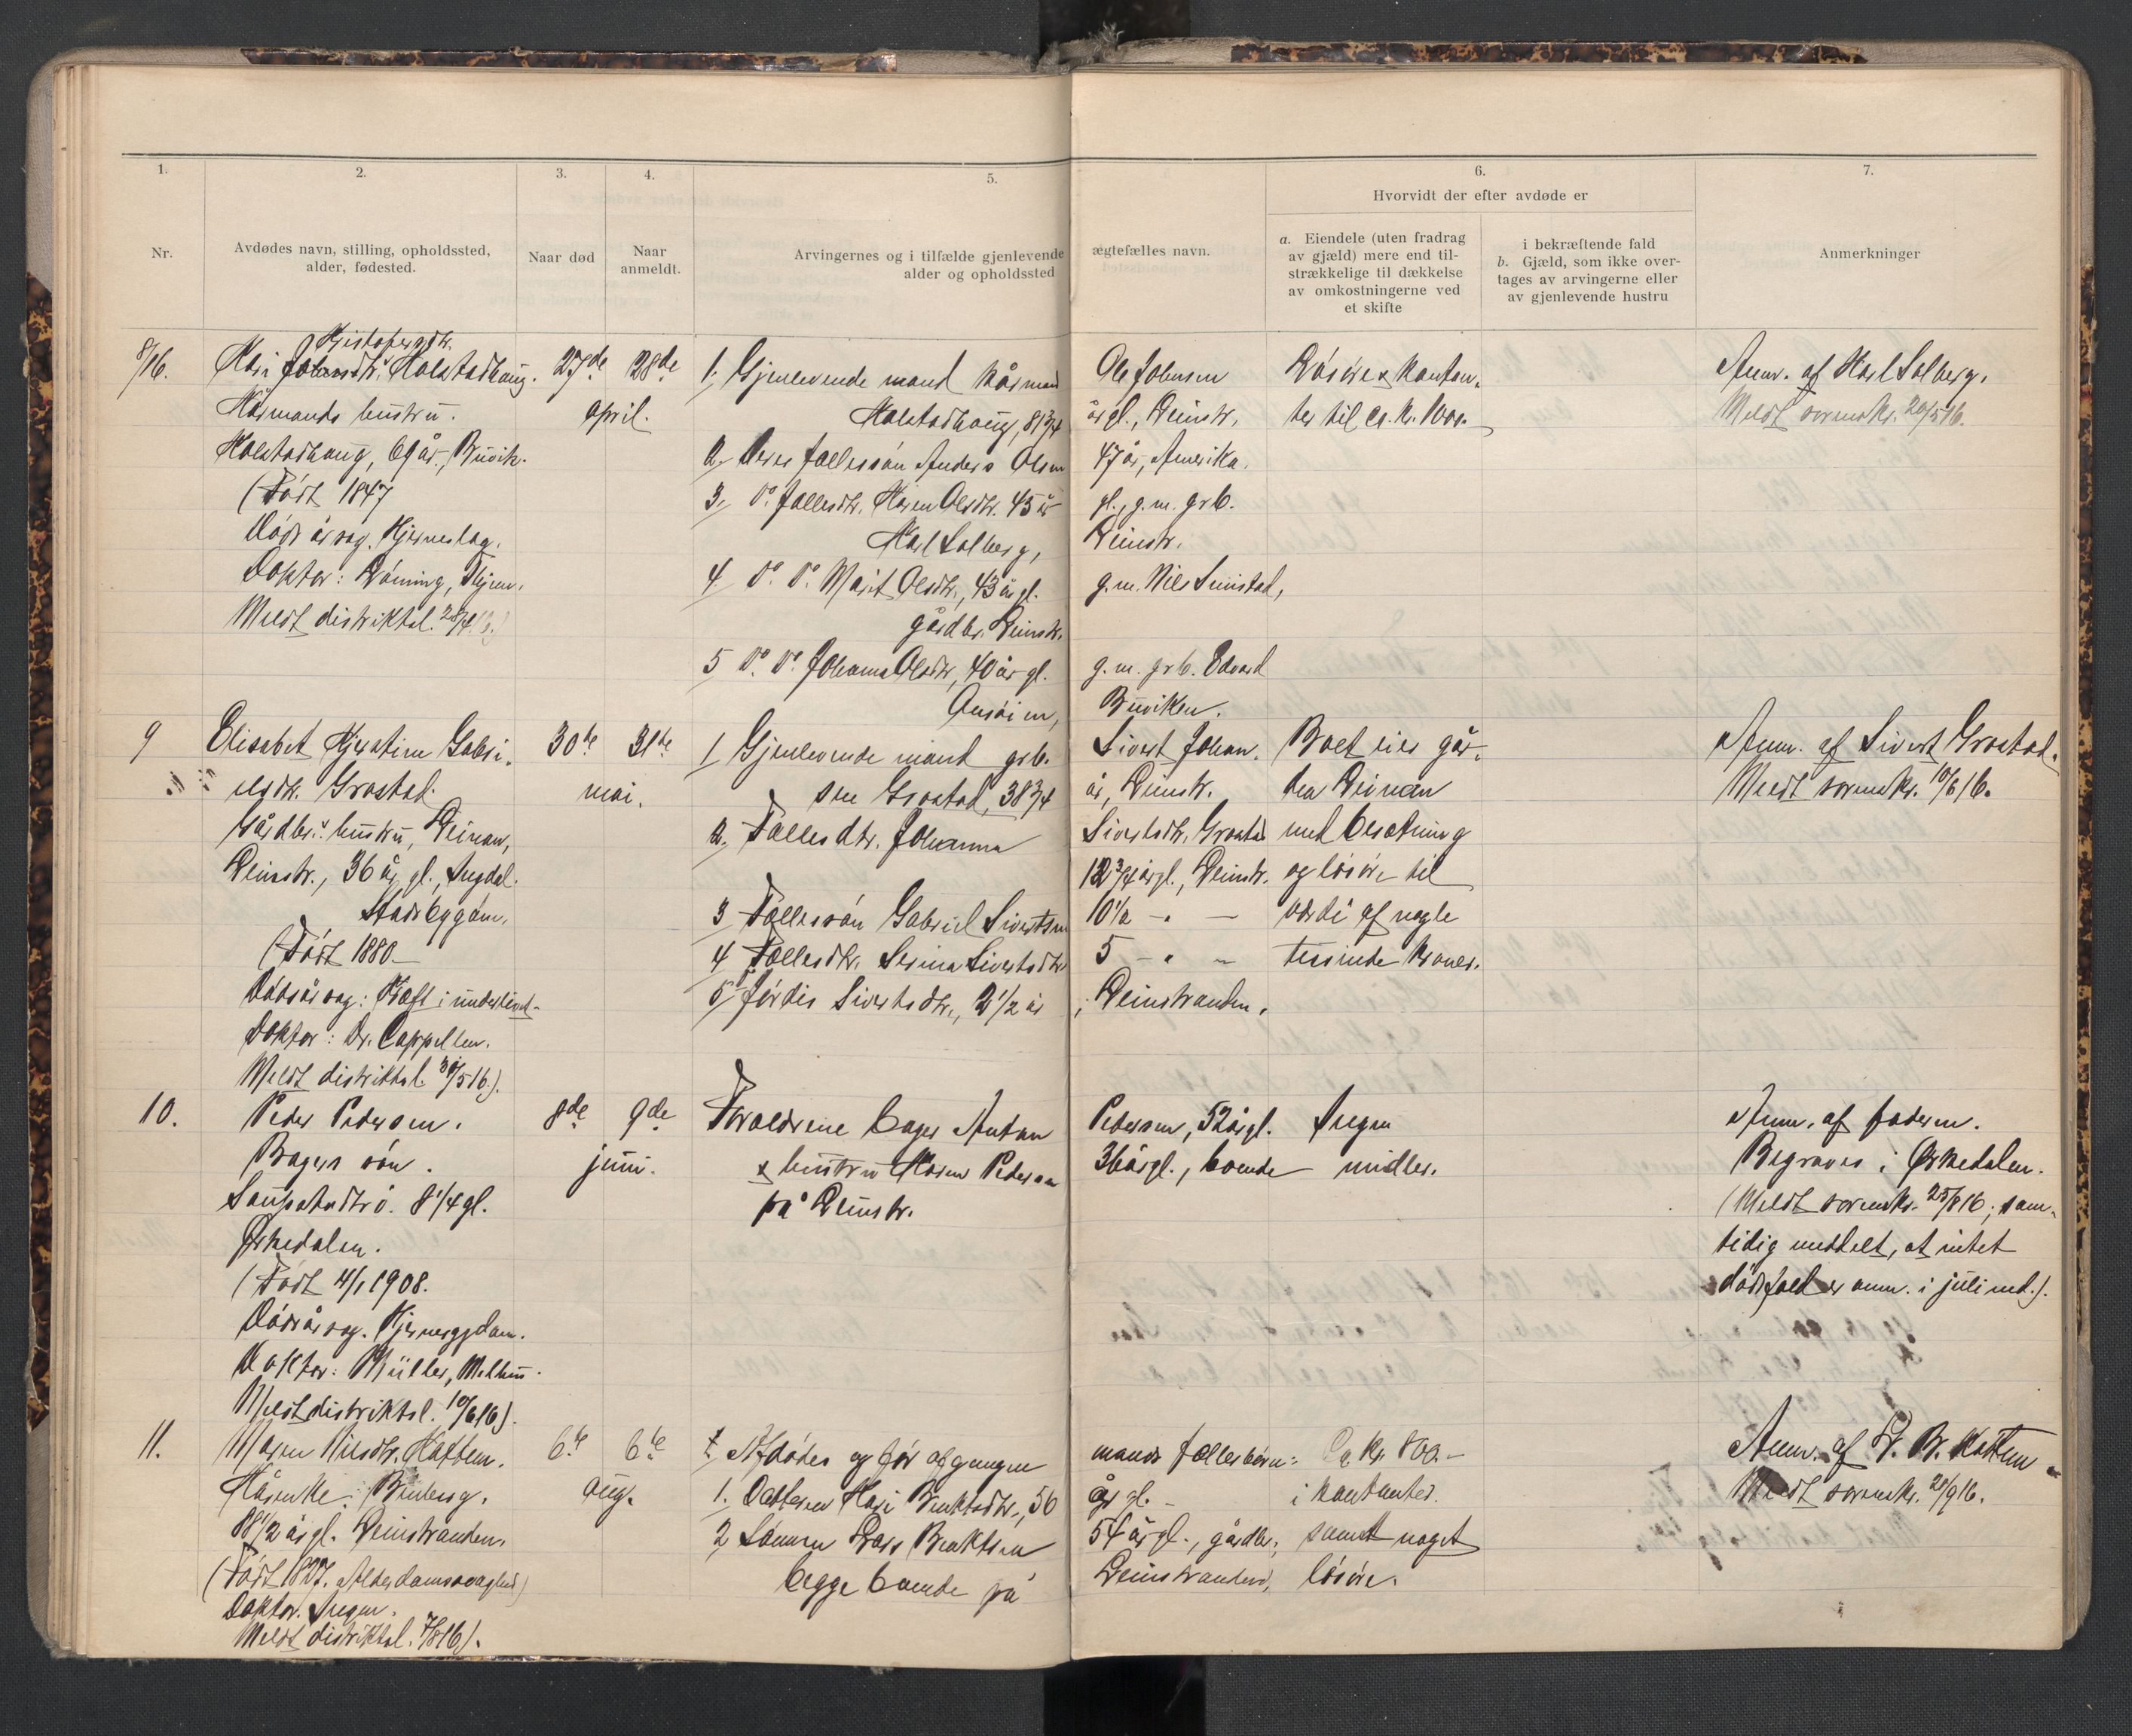 1.
2.
3.
4.
5.
6.
7.
Hvorvidt der efter avdøde er
Nr.
Avdødes navn, stilling, opholdssted,
alder, fødested.
Naar død
Naar
anmeldt.
Arvingernes og i tilfælde gjenlevende ægtefælles navn.
alder og opholdssted
a. Eiendele (uten fradrag
av gjæld) mere end til-
strækkelige til dækkelse
av omkostningerne ved
et skifte
i bekræftende fald
b. Gjæld, som ikke over-
tages av arvingerne eller
av gjenlevende hustru
Anmerkninger
8/16.
Kristofersdtr.
Kari Johansdtr. Holstadhaug.
Kårmands hustru.
Holstadhaug, 69 år, Buvik.
(Født 1847
Dødsårsag. Hjerneslag.
Doktor: Lorning,
Meldt distriktsl. 28/4 16.)
27de
28de
april.
1. Gjenlevende mand kårmand Ole Johnsen
Holstadhaug, 81 3/4 årgl., Leinstr.
2. Deres fællessøn Anders Olsen 47 år, Amerika.
3. Do. fællesdtr. Karen Olsdtr. 45 år gl., g. m. grb.
Karl Solberg, Leinstr.
4. Do. Do. Marit Olsdtr., 43 årgl. g. m. Nils
gårdbr. Leinstr.
5 Do. Do. Johanna Olsdtr., 40 år gl. g. m. grb. Edvard
Buviken.
Løsøre & kontan-
ter til ca. kr. 1000.
Anm. af Karl Solberg.
Meldt sorenskr. 20/5 16.
9
Elisabet Kjerstine Gabri-
elsdtr. Grostad.
Gårdbr.s hustru, Leinan,
Leinstr., 36 år gl.,
Stadsbygden.
(Født 1880.
Dødsårsag: Kræft i underlivet.
Doktor: Dr. Cappellen.
Meldt distriktsl. 31/5 16.).
30te
31te
mai.
1 Gjenlevende mand grb. Sivert Johan-
sen Grostad, 38 3/4 år, Leinstr.
2. Fællesdtr. Johanna Sivertsdtr. Grostad
12 3/4 årgl., Leinstr.
3 Fællessøn Gabriel Sivertsen 10 1/2 - " -
4 Fællesdtr. Serina Sivertsdtr 5 - " -
5 Do Jordis Sivertsdtr., 2 1/2 år, Leinstranden.
Boet eier går-
den Leinan
med besætning
og løsøre til
værdi af nogle
tusinde kroner.
Anm. af Sivert Grostad.
Meldt sorenskr. 10/6 16.
10.
Peder Pedersen.
Bagers søn.
Saupstadtrø. 8 1/4 gl.
Ørkedalen.
(Født 4/1 1908.
Dødsårsag. Hjernesygdom.
Doktor: Müller, Melhus.
Meldt distriktsl. 10/6 16).
8de
9de
juni.
Forældrene bager Anton Pedersen, 52 årgl.
& hustru Karen Pedersen 36 årgl., boende
på Leinstr.
Ingen
midler.
Anm. af faderen.
Begraves i Ørkedalen.
(Meldt sorenskr. 25/8 16; sam-
tidig meddelt, at intet
dødsfald er anm. i juli md.).
11.
Maren Nilsdtr. Kattem.
Kårenke. Benberg.
88 1/2 årgl. Leinstranden.
(Født 1827. Alderdomssvaghed)
Doktor. Ingen.
Meldt distriktsl. 7/8 16).
6te
6te
aug.
Afdødes og før afgangne mands fællesbørn:
1. Datteren Kari Bentsdtr., 56 år gl. -
2. Sønnen Lars Bentsen 54 årgl., gårdbr.,
begge boende på Leinstranden.
Ca. kr. 800.-
i kontanter.
samt noget
løsøre.
Anm. af L. B. Kattem.
Meldt sorenskr. 20/9 16.